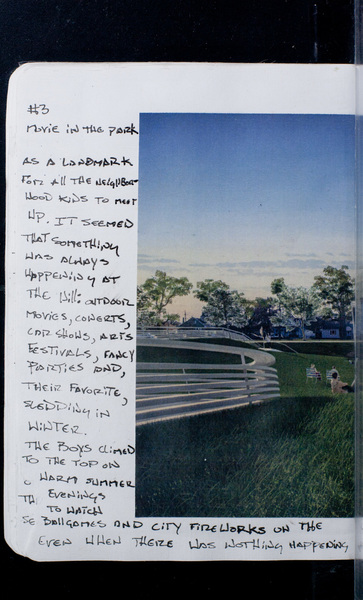 #3
MOVIE IN THE PARK
AS A LANDMARK
FOR ALL THE NEIGHBOR
HOOD KIDS TO MEET
UP. IT SEEMED
THAT SOMETHING
WAS ALWAYS
HAPPENING AT
THE HILL: OUTDOOR
MOVIES, CONCERTS,
CAR SHOWS, ARTS
FESTIVALS, FANCY
PARTIES AND,
THEIR FAVORITE,
SLEDDING IN
WINTER.
THE BOYS CLIMED
TO THE TOP ON
WARM SUMMER
EVENINGS
TO WATCH
SE BALLGAMES AND CITY FIREWORKS ON THE
EVEN WHEN THERE WAS NOTHING HAPPENING